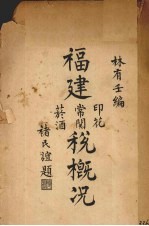 林有壬編
福建印花常關菸酒稅概況
褚民誼題